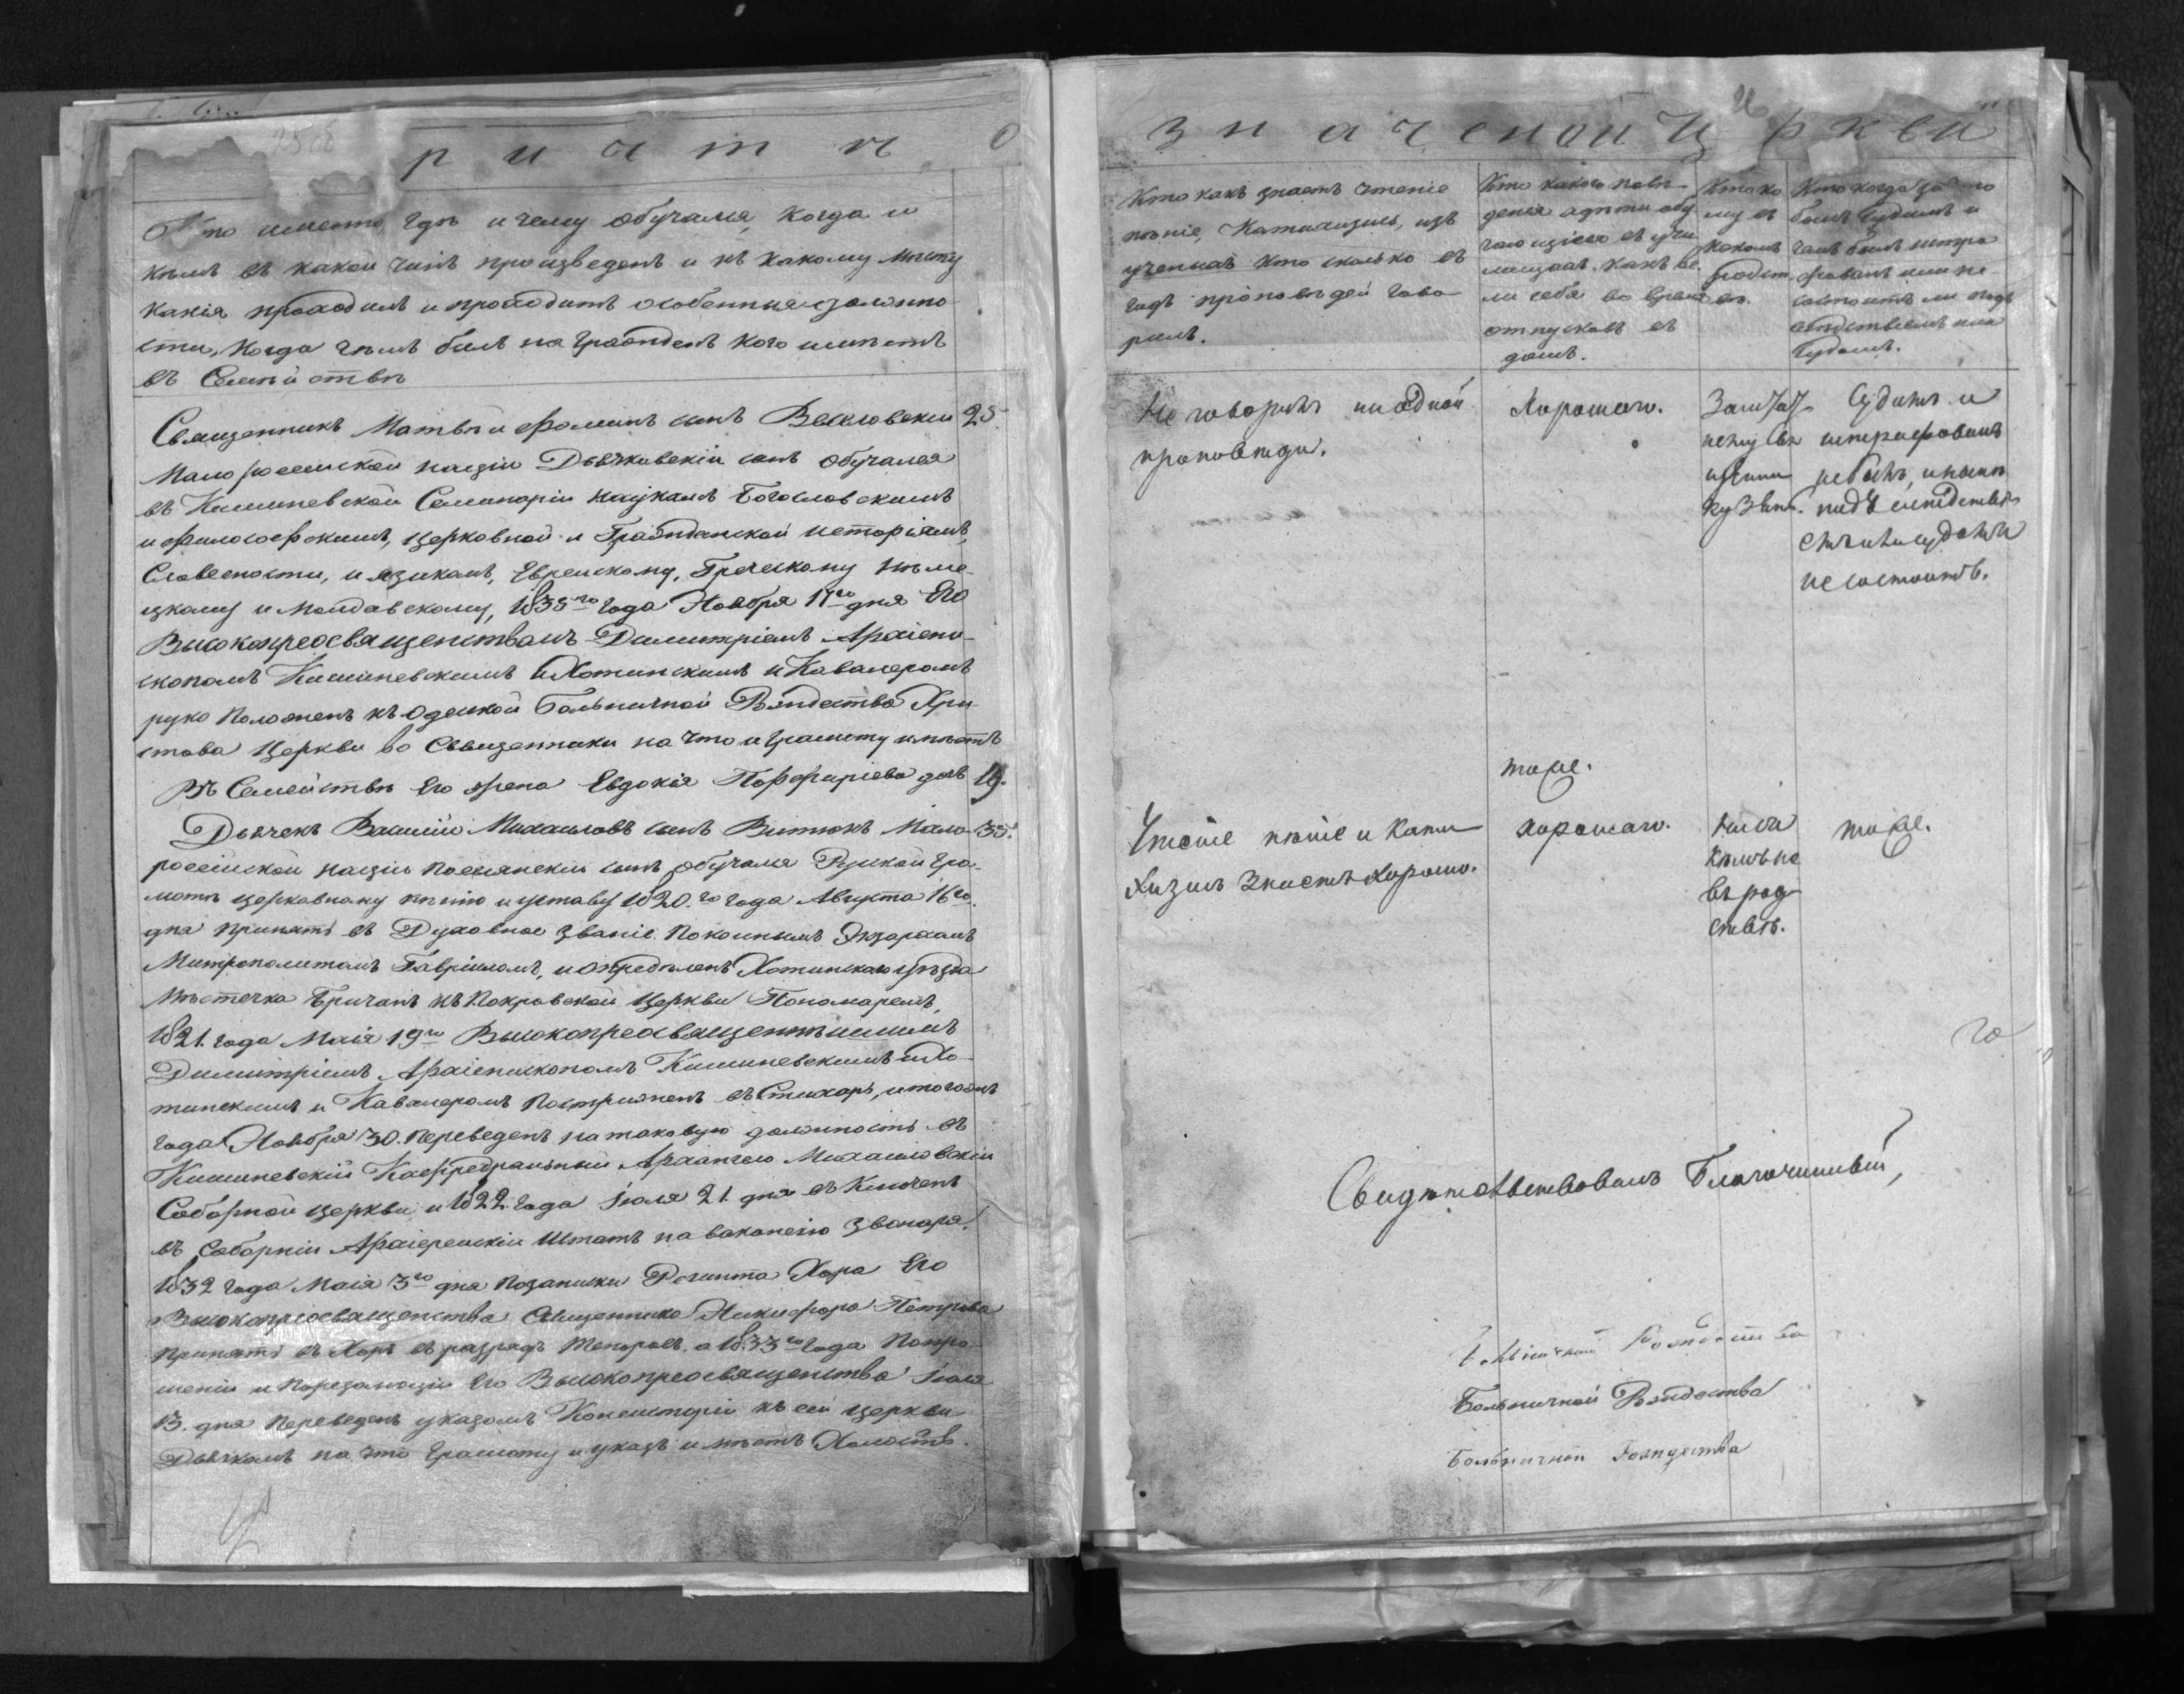 причтѣ о
Кто именно, гдѣ и чему обучался, когда и
кѣмъ въ какой чинъ произведенъ и къ какому мѣсту
какія проходилъ и проходитъ особенныя должно
сти, когда чѣмъ былъ награжденъ кого имѣетъ
въ Семѣйствѣ
Священникъ Матвѣй Фоминъ сынъ Веселовскій 25.
Малороссійской націи Дьячковскій сынъ обучался
въ Кишиневской Семинаріи наукамъ Богословскимъ
и философскимъ, церковной и Гражданской исторіямъ,
Словесности, и языкамъ, Еврейскому, Греческому Нѣме
цкому и Молдавскому, 1835го года Ноября 17го дня Его
Высокопреосвященствомъ Димитріемъ Архіепи-
скопомъ Кишиневскимъ и Хотинскимъ и Кавалеромъ
руко положенъ къ Одесской Больничной Рождества Хри-
стова Церкви во Священники на что и грамоту имѣетъ
Въ Семействѣ Его жена Евдокія Порфиріева дочь 19.
Дьячекъ Василій Михаиловъ сынъ Витюкъ Мало- 35.
россійской націи Поселянскій сынъ обучался Руской гра-
мотѣ церковному пѣнію и уставу 1820.го года Августа 16го.
дня принятъ въ Духовное званіе Покойнымъ Экзархомъ
Митрополитомъ Гавріиломъ, и опредѣленъ Хотинскаго уѣзда
Мѣстечка Бричанъ къ Покровской Церкви Пономаремъ,
1821. года Маія 19го Высокопреосвященнѣйшимъ
Димитріемъ Архіепископомъ Кишиневскимъ и Хо-
тинскимъ и Кавалеромъ Постриженъ въ Стихарь, и того жъ
года Ноября 30. переведенъ на таковую должность въ
Кишиневскій Кафедральный Архангело Михаиловскій
Соборной церкви, и 1822. года Іюля 21. дня въ Ключенъ
въ Соборній Архіерейскій Штатъ на ваконсію Звонаря.
1832 года Маія 3го дня по записки Регинта Хора Его
Высокопреосвященства Священника Никифора Петрова
принятъ въ Хоръ въ разрядъ Теноровъ, а 1833го года По про-
шенію и По резолюціи Его Высокопреосвященства Іюля
13. дня переведенъ указомъ Консисторіи къ сей церкви
Дьячкомъ на что Грамоту и указъ имѣетъ Холостъ.
значеной Церкви
Кто какъ знаетъ чтеніе
пѣніе, Катихизисъ, изъ
ученыхъ кто сколько въ
годъ проповѣдей гово
рилъ.
Кто какого пове-
денія а дѣти обу
чающіеся въ учи
лищахъ. какъ ве.
ли себя во время
отпусковъ въ
домъ.
Кто ко
му въ
какомъ
родст
вѣ.
Кто когда за что
былъ Судимъ и
чемъ былъ штра
фованъ или не
состоитъ ли подъ
слѣдствіемъ или
Судомъ.
Не говоритъ ни одной
проповѣди.
Хорошаго.
Судимъ и
штрафованъ
не былъ, и нынѣ
подъ слѣдстві
емъ и судомъ
не состоитъ.
тоже.
Чтеніе пѣніе и Кати
хизисъ Знаетъ хорошо.
хорошаго.
Ни съ
кѣмъ не
въ род
ствѣ.
тоже.
го
Свидѣтельствовалъ Благочинный,
Больничной Рождества
Больничной Рождества
Больничной Рождества